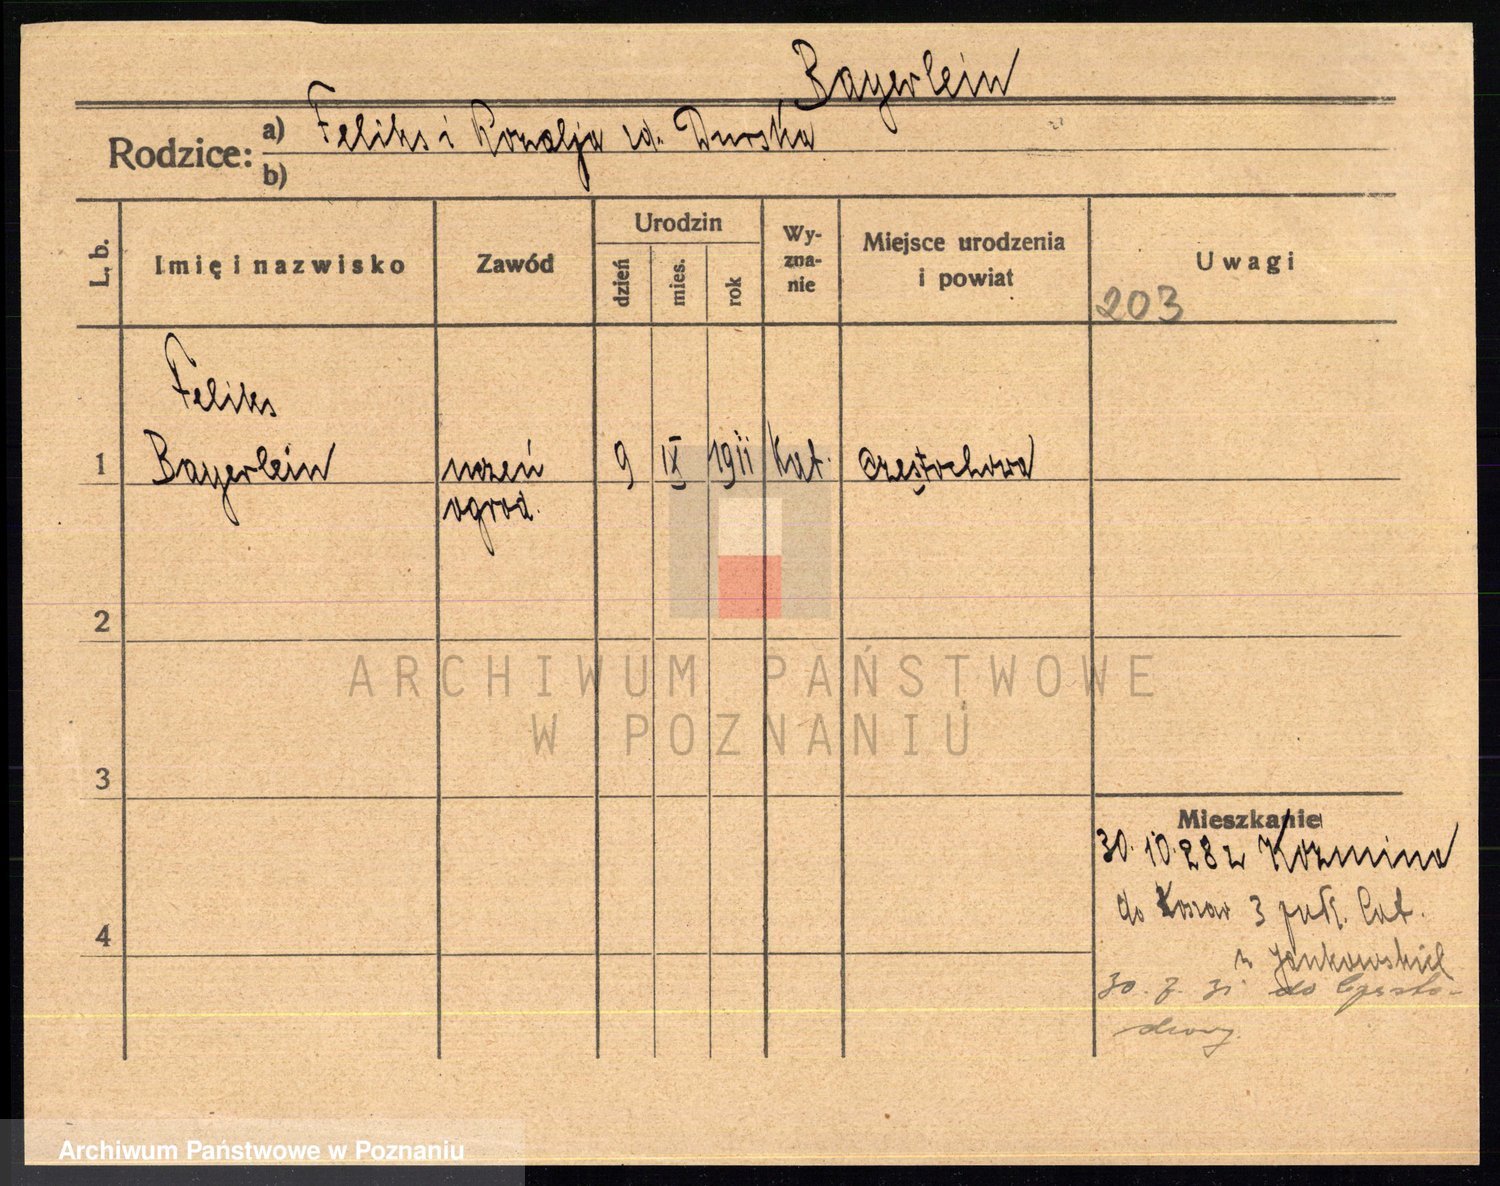 Bayerlein
Rodzice: a) Feliks i Rozalja zd. Durska
b)
L. b.
Imię i nazwisko
Zawód
Urodzin
dzień
mies.
rok
Wy-
zna-
nie
Miejsce urodzenia
i powiat
Uwagi
203
Feliks
1 Bayerlein uczeń 9 IX 1911 Kat. Częstochowa
ogrod.
2
ARCHIWUM PAŃSTWOWE
W POZNANIU
3
Mieszkanie
30. 10. 28 z Kozmina
do Koszar 3 Lot.
u Jankowskiel
4
30. 7. 31 do Często-
chowy.
Archiwum Państwowe w Poznaniu